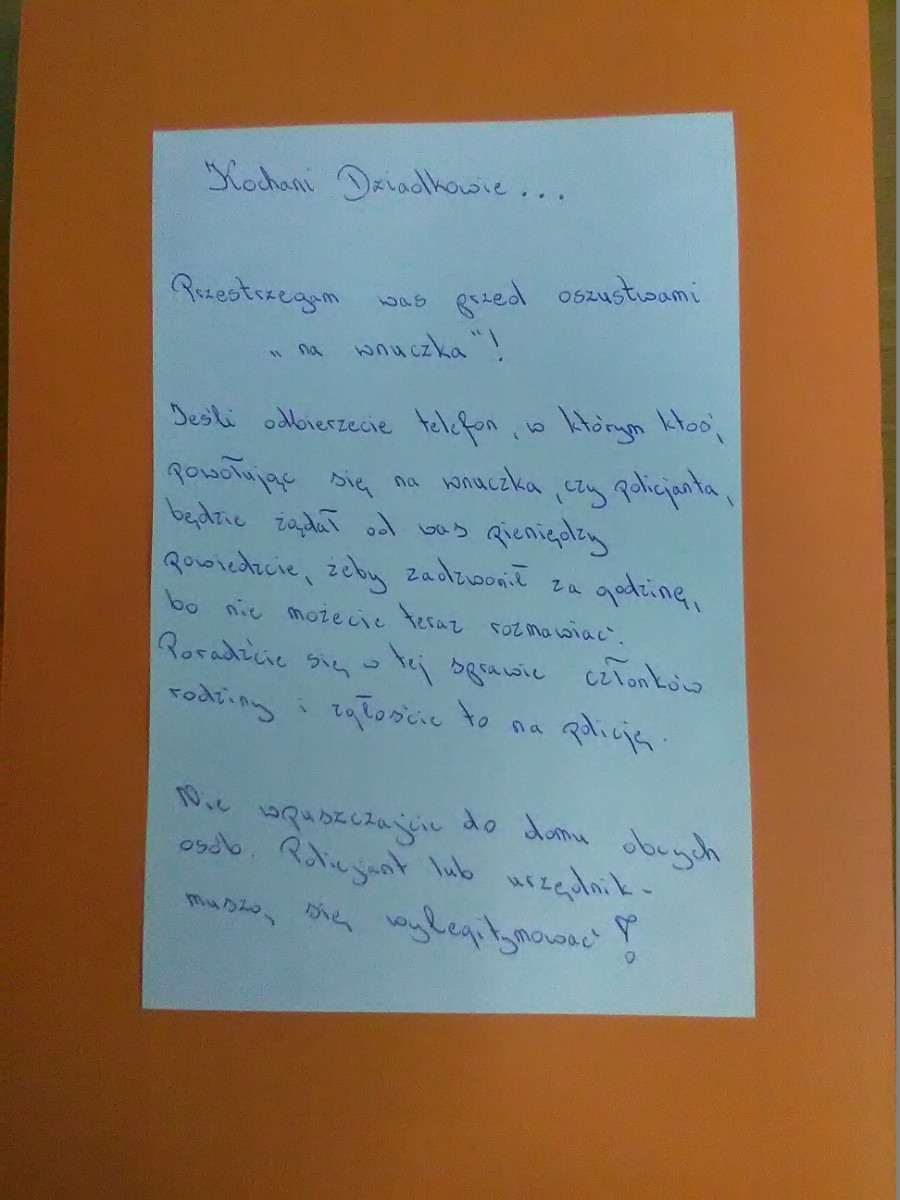 Kochani Dziadkowie...
Przestrzegam was przed oszustwami
„na wnuczka"!
Jeśli odbierzecie telefon, w którym ktoś,
powołując się na wnuczka, czy policjanta,
będzie żądał od was pieniędzy
powiedzcie, żeby zadzwonił za godzinę,
bo nie możecie teraz rozmawiać.
Poradźcie się w tej sprawie członków
rodziny i zgłoście to na policję.
Nie wpuszczajcie do domu obcych
osób. Policjant lub urzędnik -
muszą się wylegitymować!